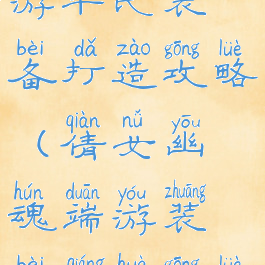 游平民装
bèi dǎ zào gōng lüè
备打造攻略
qiàn nǚ yōu
（倩女幽
hún duān yóu zhuāng
魂端游装